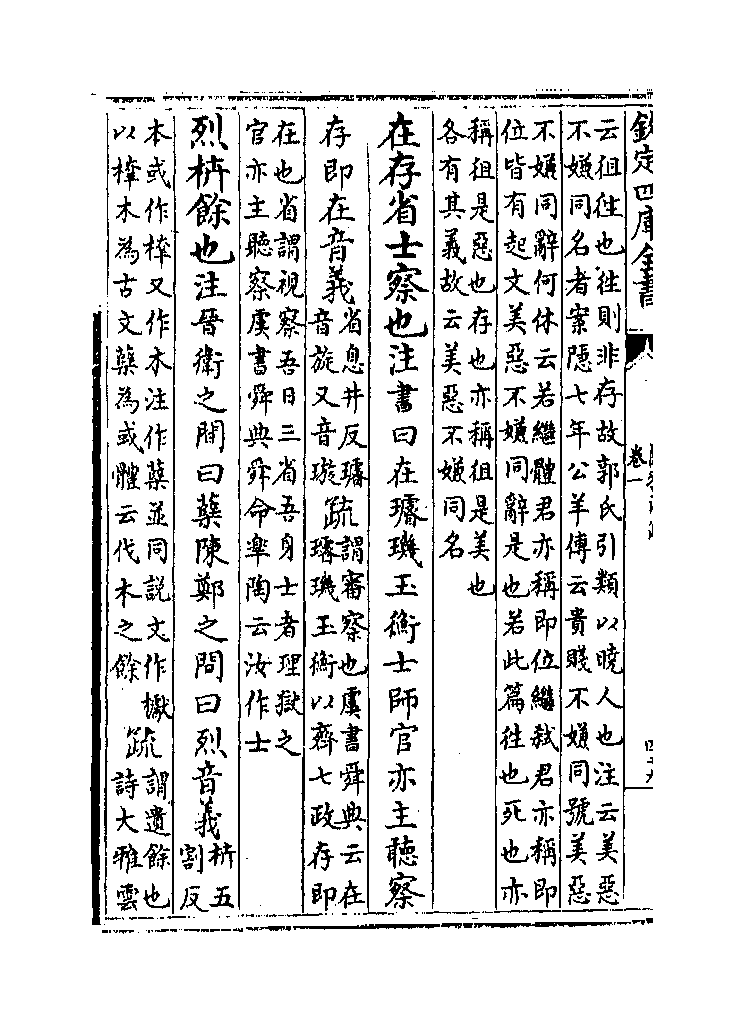 欽定四庫全書
卷一
云徂徃也徃則非存故郭氏引類以曉人也注云美惡
不嫌同名者案隱七年公羊傳云貴賤不嫌同號美惡
不嫌同辭何休云若繼體君亦稱即位繼弑君亦稱即
位皆有起文美惡不嫌同辭是也若此篇徃也死也亦
稱徂是惡也存也亦稱徂是美也
各有其義故云美惡不嫌同名
在存省士察也注書曰在璿璣玉衡士師官亦主聽察
存即在音義
省息井反璿
音旋又音璇
疏
謂審察也虞書舜典云在
璿璣玉衡以齊七政存即
在也省謂視察吾日三省吾身士者理獄之
官亦主聽察虞書舜典舜命臯陶云汝作士
烈枿餘也注晉衛之間曰蘖陳鄭之間曰烈音義
枿五
割反
本或作㮆又作木注作蘖並同説文作㰕
以㮆木為古文蘖為或體云伐木之餘
疏
謂遺餘也
詩大雅雲